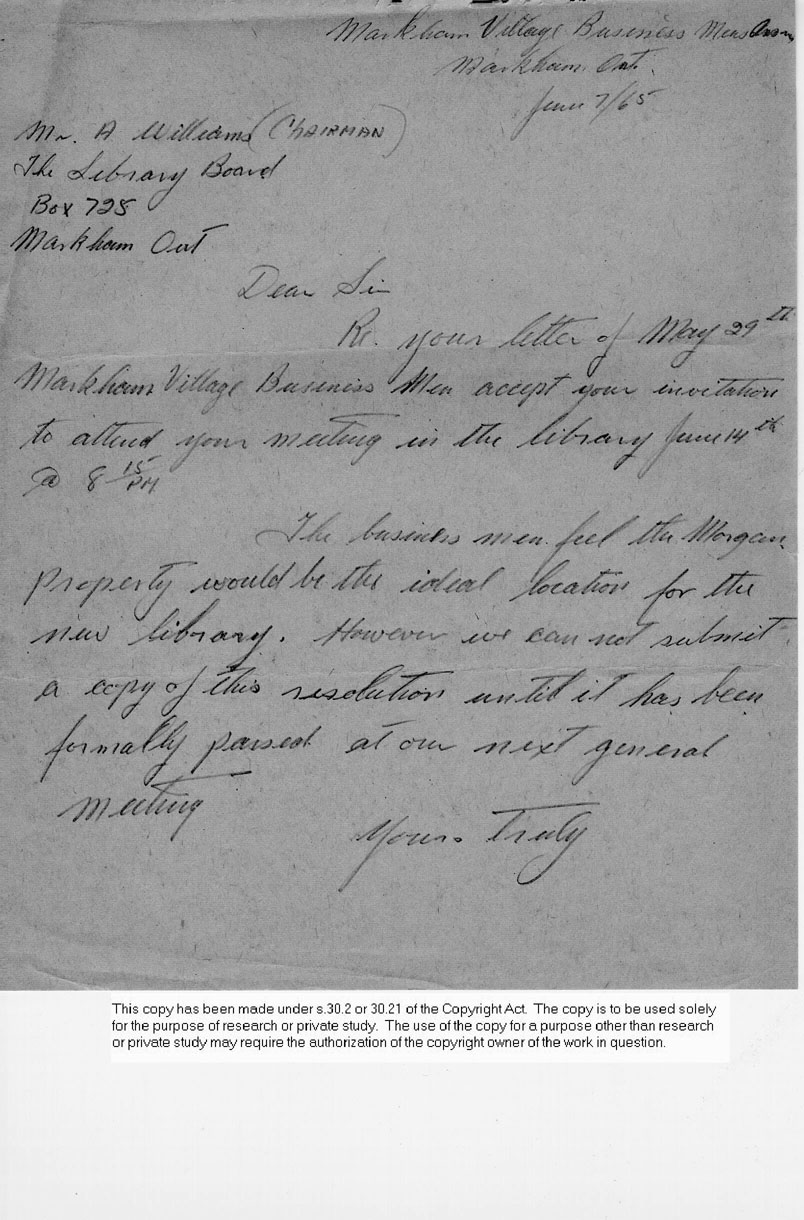 Markham Village Business Mens Assn
Markham. Ont.
June 7/65
Mr. A Williams (CHAIRMAN)
The Library Board
Box 728
Markham Ont
Dear Sir
Re. your letter of May 29th
Markham Village Business Men accept your invitation
to attend your meeting in the library June 14th
@ 8 15 PM
The business men feel the Morgan
property would be the ideal location for the
new library. However we can not submit
a copy of this resolution until it has been
formally passed at our next general
meeting
Yours Truly
This copy has been made under s.30.2 or 30.21 of the Copyright Act. The copy is to be used solely
for the purpose of research or private study. The use of the copy for a purpose other than research
or private study may require the authorization of the copyright owner of the work in question.